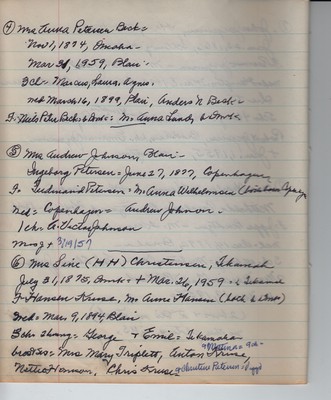 ④ Mrs Anna Petersen Beck =
Nov 1, 1874, Omaha -
Mar 31, 1959, Blair -
3 ch = Marcus, Laura, Agnes,
md March 16, 1899, Blair, Anders N. Beck =
F. Niels Peter Beck = M. Anna
⑤ Mrs Andrew Johnson, Blair -
Ingeborg Petersen = June 27, 1877, Copenhagen
F. Ferdinand Petersen = M. Anna Wilhelmsen
Md = Copenhagen = Andrew Johnson -
1 ch. A. Victor Johnson
+ 3/19/57
⑥ Mrs Sine (H H) Christensen, Tekamah
July 31, 1875, + Mar. 26, 1959 - Tekamah
F. Hansen Kruse, M. Anne Hansen (both)
Md = Mar. 9, 1894, Blair
George + Emil = Tekamah =
Mrs Mary Triplett, Anton Kruse,
Nettie Hannon, Chris Kruse
Christine Petersen =